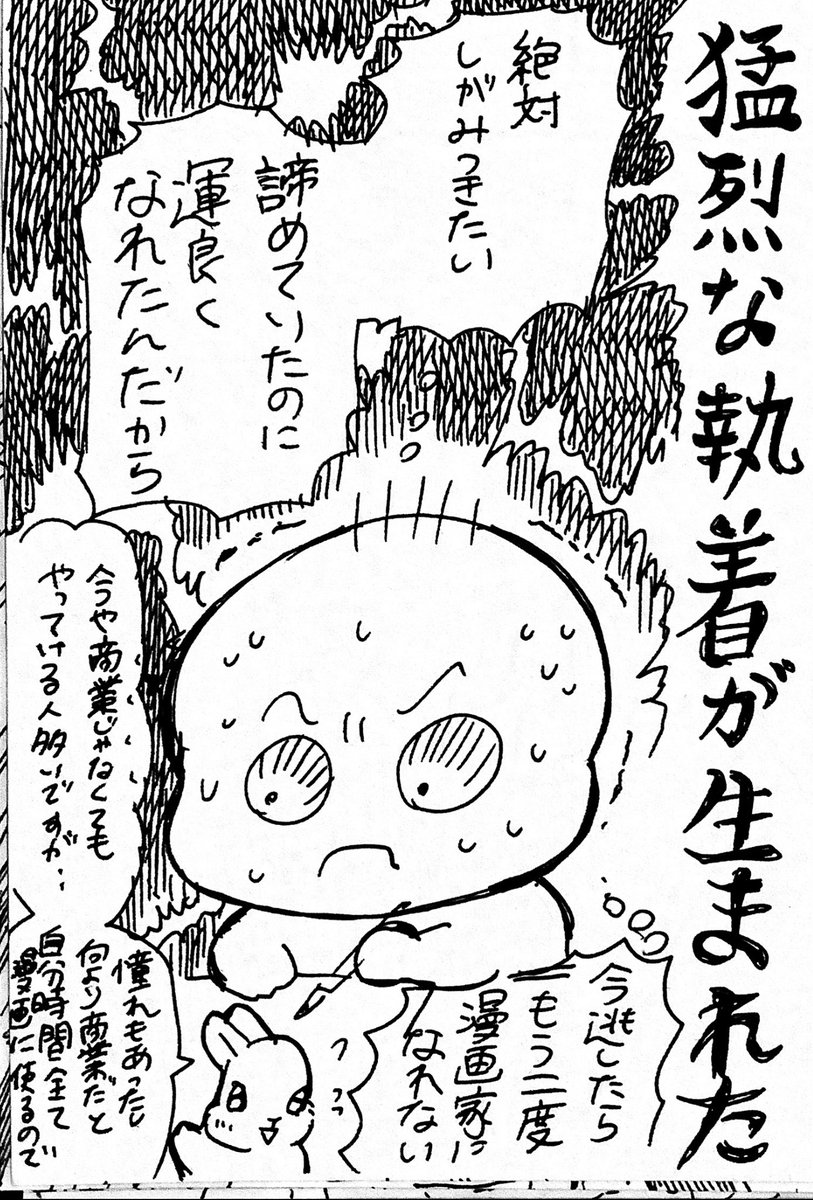 猛烈な執着が生まれた
絶対
しがみつきたい
諦めていたのに
運良く
なれたんだから
今逃したら
もう二度と
漫画家に
なれない
今や商業じゃなくても
やってける人多いですが…
憧れもあったし
何より商業だと
自分時間全て
漫画に使えるので